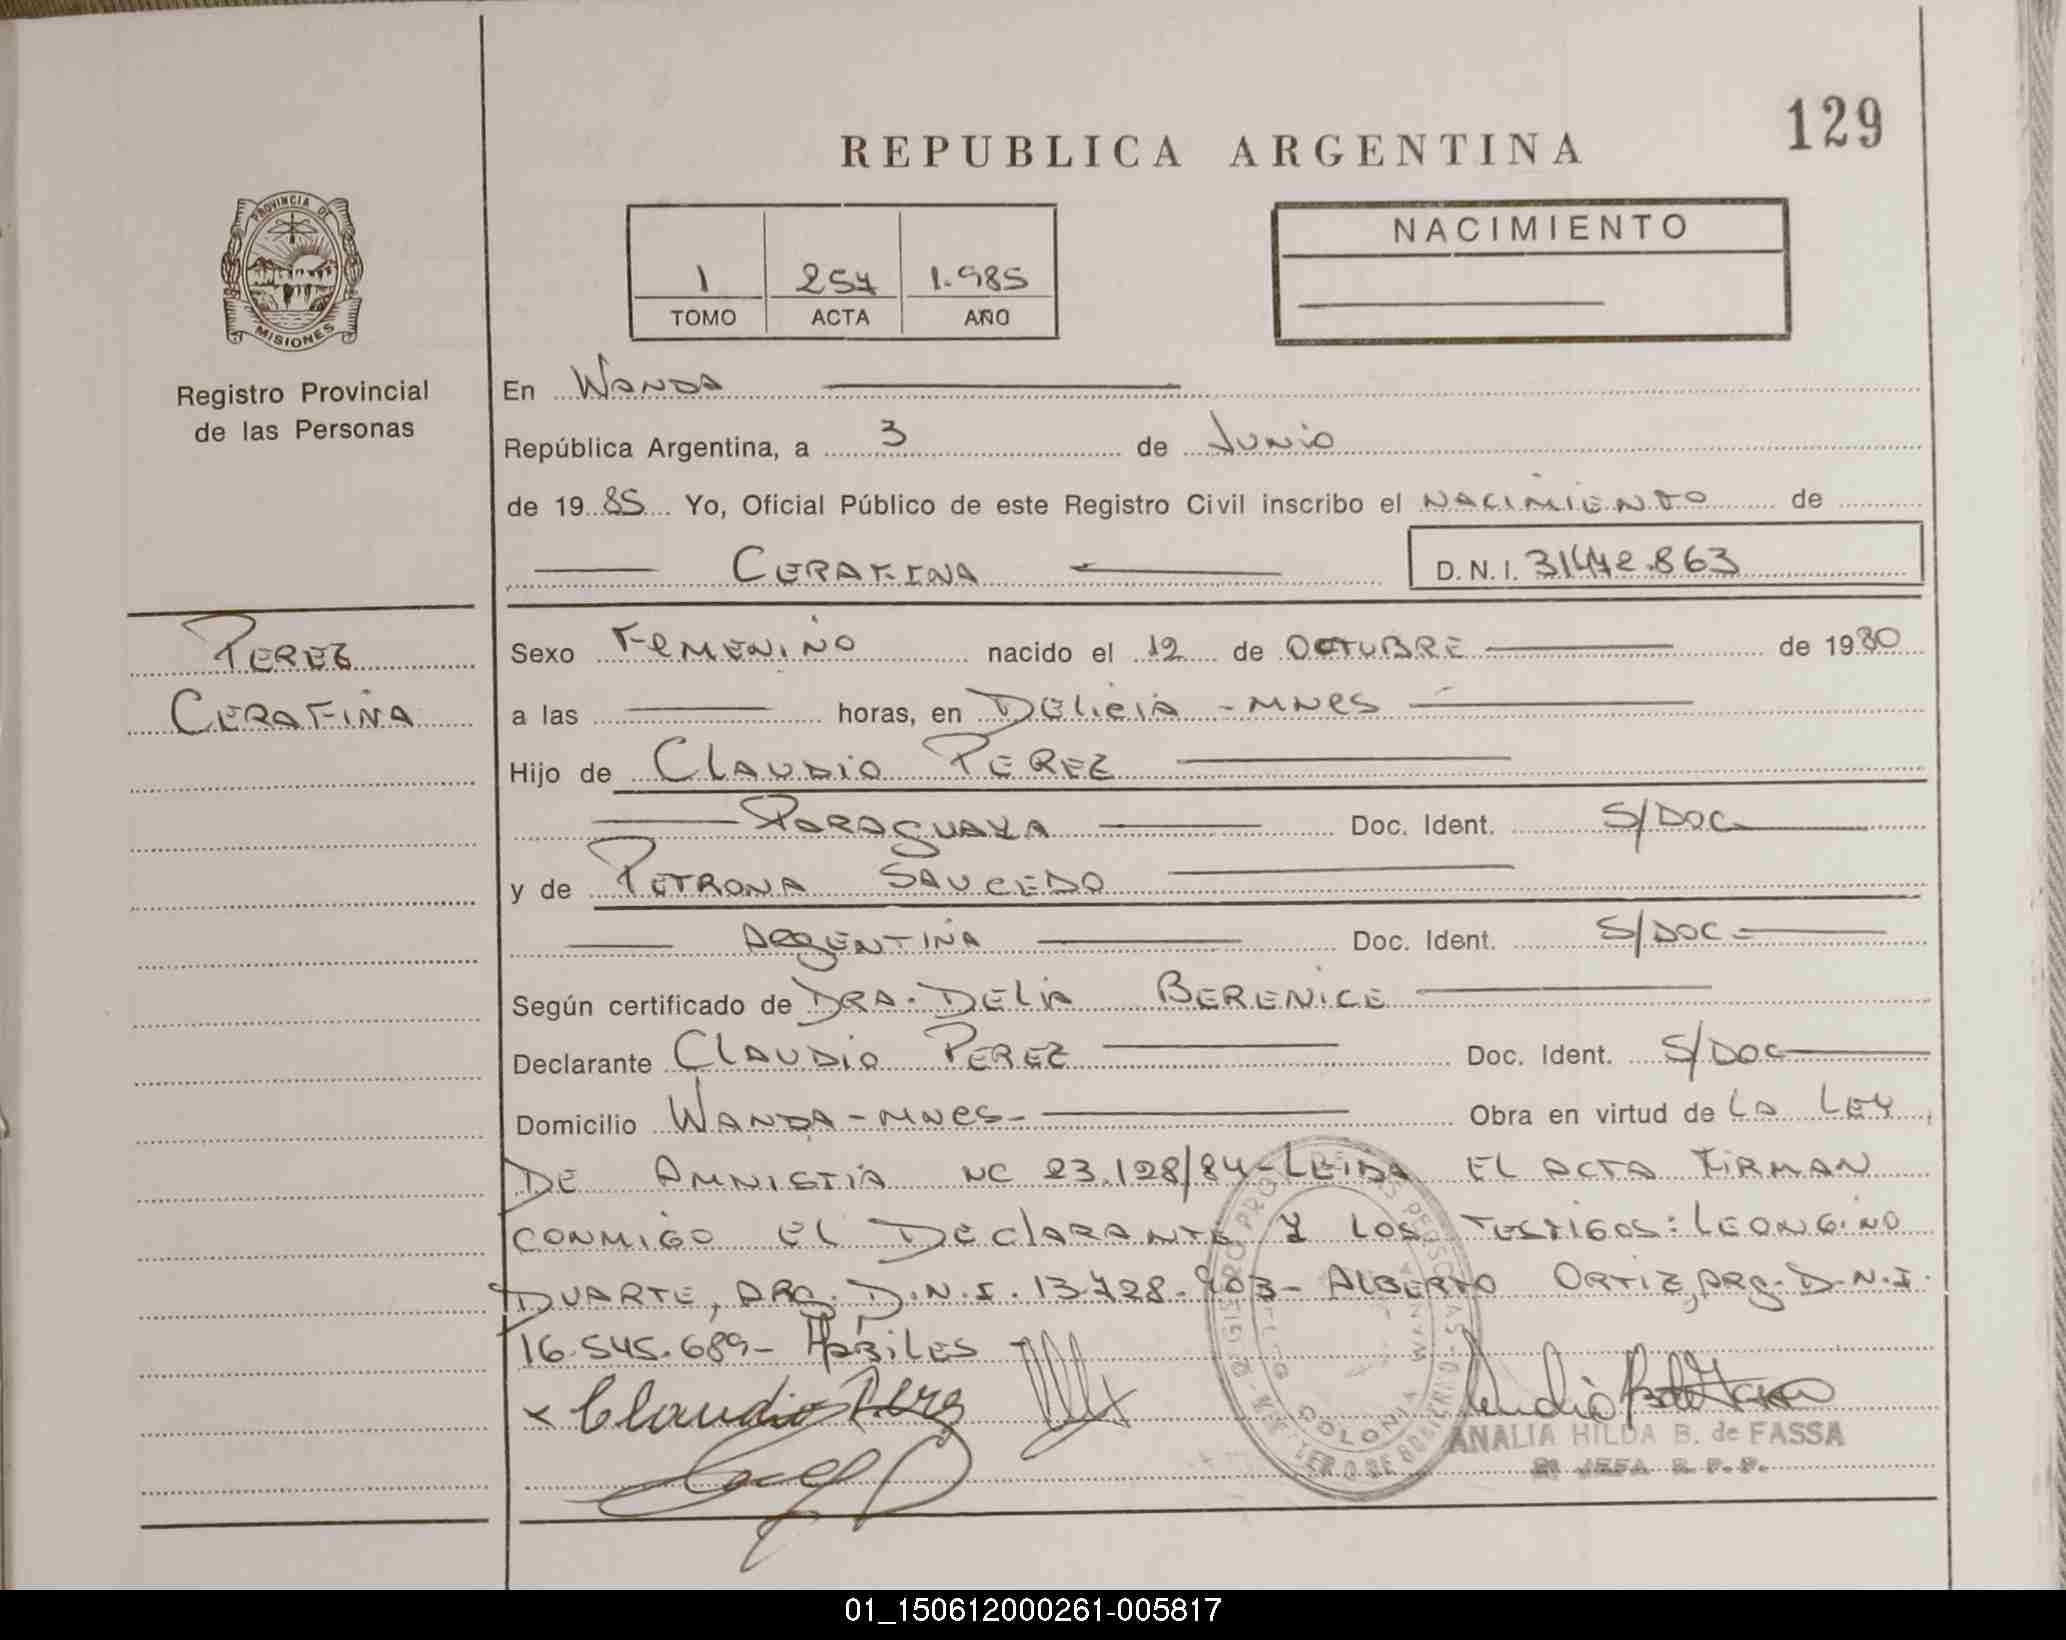 129
REPUBLICA ARGENTINA
PROVINCIA DE
MISIONES
Registro Provincial
de las Personas
1 257 1.985
TOMO ACTA AÑO
NACIMIENTO
En WANDA
República Argentina, a 3 de JUNIO
de 1985 Yo, Oficial Público de este Registro Civil inscribo el NACIMIENTO de
CERAFINA D.N.I. 31.472.863
PEREZ
CERAFINA
Sexo FEMENINO nacido el 12 de OCTUBRE de 1980
a las horas, en DELICIA - MNES
Hijo de CLAUDIO PEREZ
PARAGUAYA Doc. Ident. S/DOC
y de PETRONA SAUCEDO
ARGENTINA Doc. Ident. S/DOC
Según certificado de DRA. DELIA BERENICE
Declarante CLAUDIO PEREZ Doc. Ident. S/DOC
Domicilio WANDA - MNES - Obra en virtud de LA LEY
DE AMNISTIA NC 23.128/84 - LEIDA EL ACTA FIRMAN
CONMIGO EL DECLARANTE Y LOS TESTIGOS: LEONGINO
DUARTE, ARG. D.N.I. 13.728.903 - ALBERTO ORTIZ, ARG. D.N.I.
16.545.689 - HABILES
x Claudio Perez
COLONIA WANDA
ANALIA HILDA B. de FASSA
JEFA R. P. P.
01_150612000261-005817